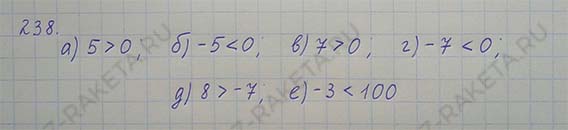 238.
а) 5 > 0, б) -5 < 0; в) 7 > 0; г) -7 < 0;
д) 8 > -7, е) -3 < 100